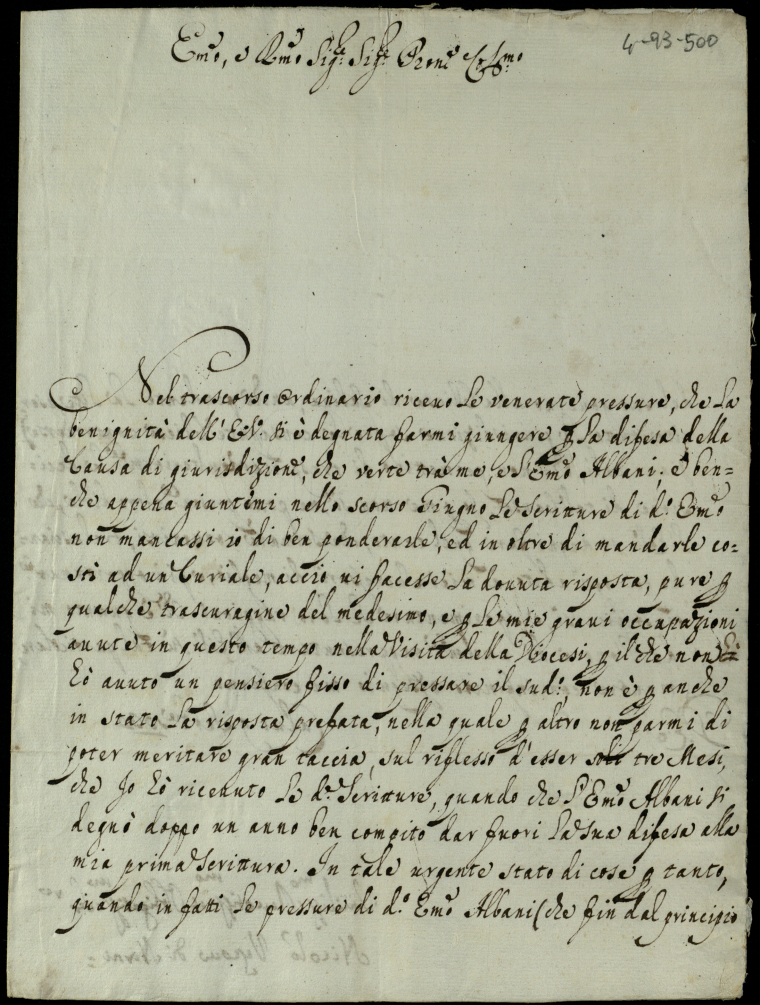 4-93-500
Emo, e Rmo Sigr. Sigr. Prone Colmo
Nel trascorso ordinario ricevo le venerate pressure, che la
benignità dell' E.V. si è degnata farmi giungere p la difesa della
Causa di giurisdizione, che verte trà me, e l'Emo Albani; e ben=
che appena giuntimi nello scorso Giugno le scritture di do. Emo
non mancassi io di ben ponderarle, ed in oltre di mandarle co=
stì ad un Curiale, acciò vi facesse la dovuta risposta, pure p
qualche trascuragine del medesimo, e p le mie gravi occupazioni
avute in questo tempo nella Visita della Diocesi, p il che non
hò avuto un pensiero fisso di pressare il sudo., non è p anche
in stato la risposta prefata, nella quale p altro non parmi di
poter meritare gran taccia, sul riflesso d'esser soli tre Mesi,
che Io hò ricevuto le de. Scritture, quando che l'Emo Albani si
degnò doppo un anno ben compito dar fuori la sua difesa alla
mia prima scrittura. In tale urgente stato di cose p tanto,
quando in fatti le pressure di do. Emo Albani (che fin dal principio